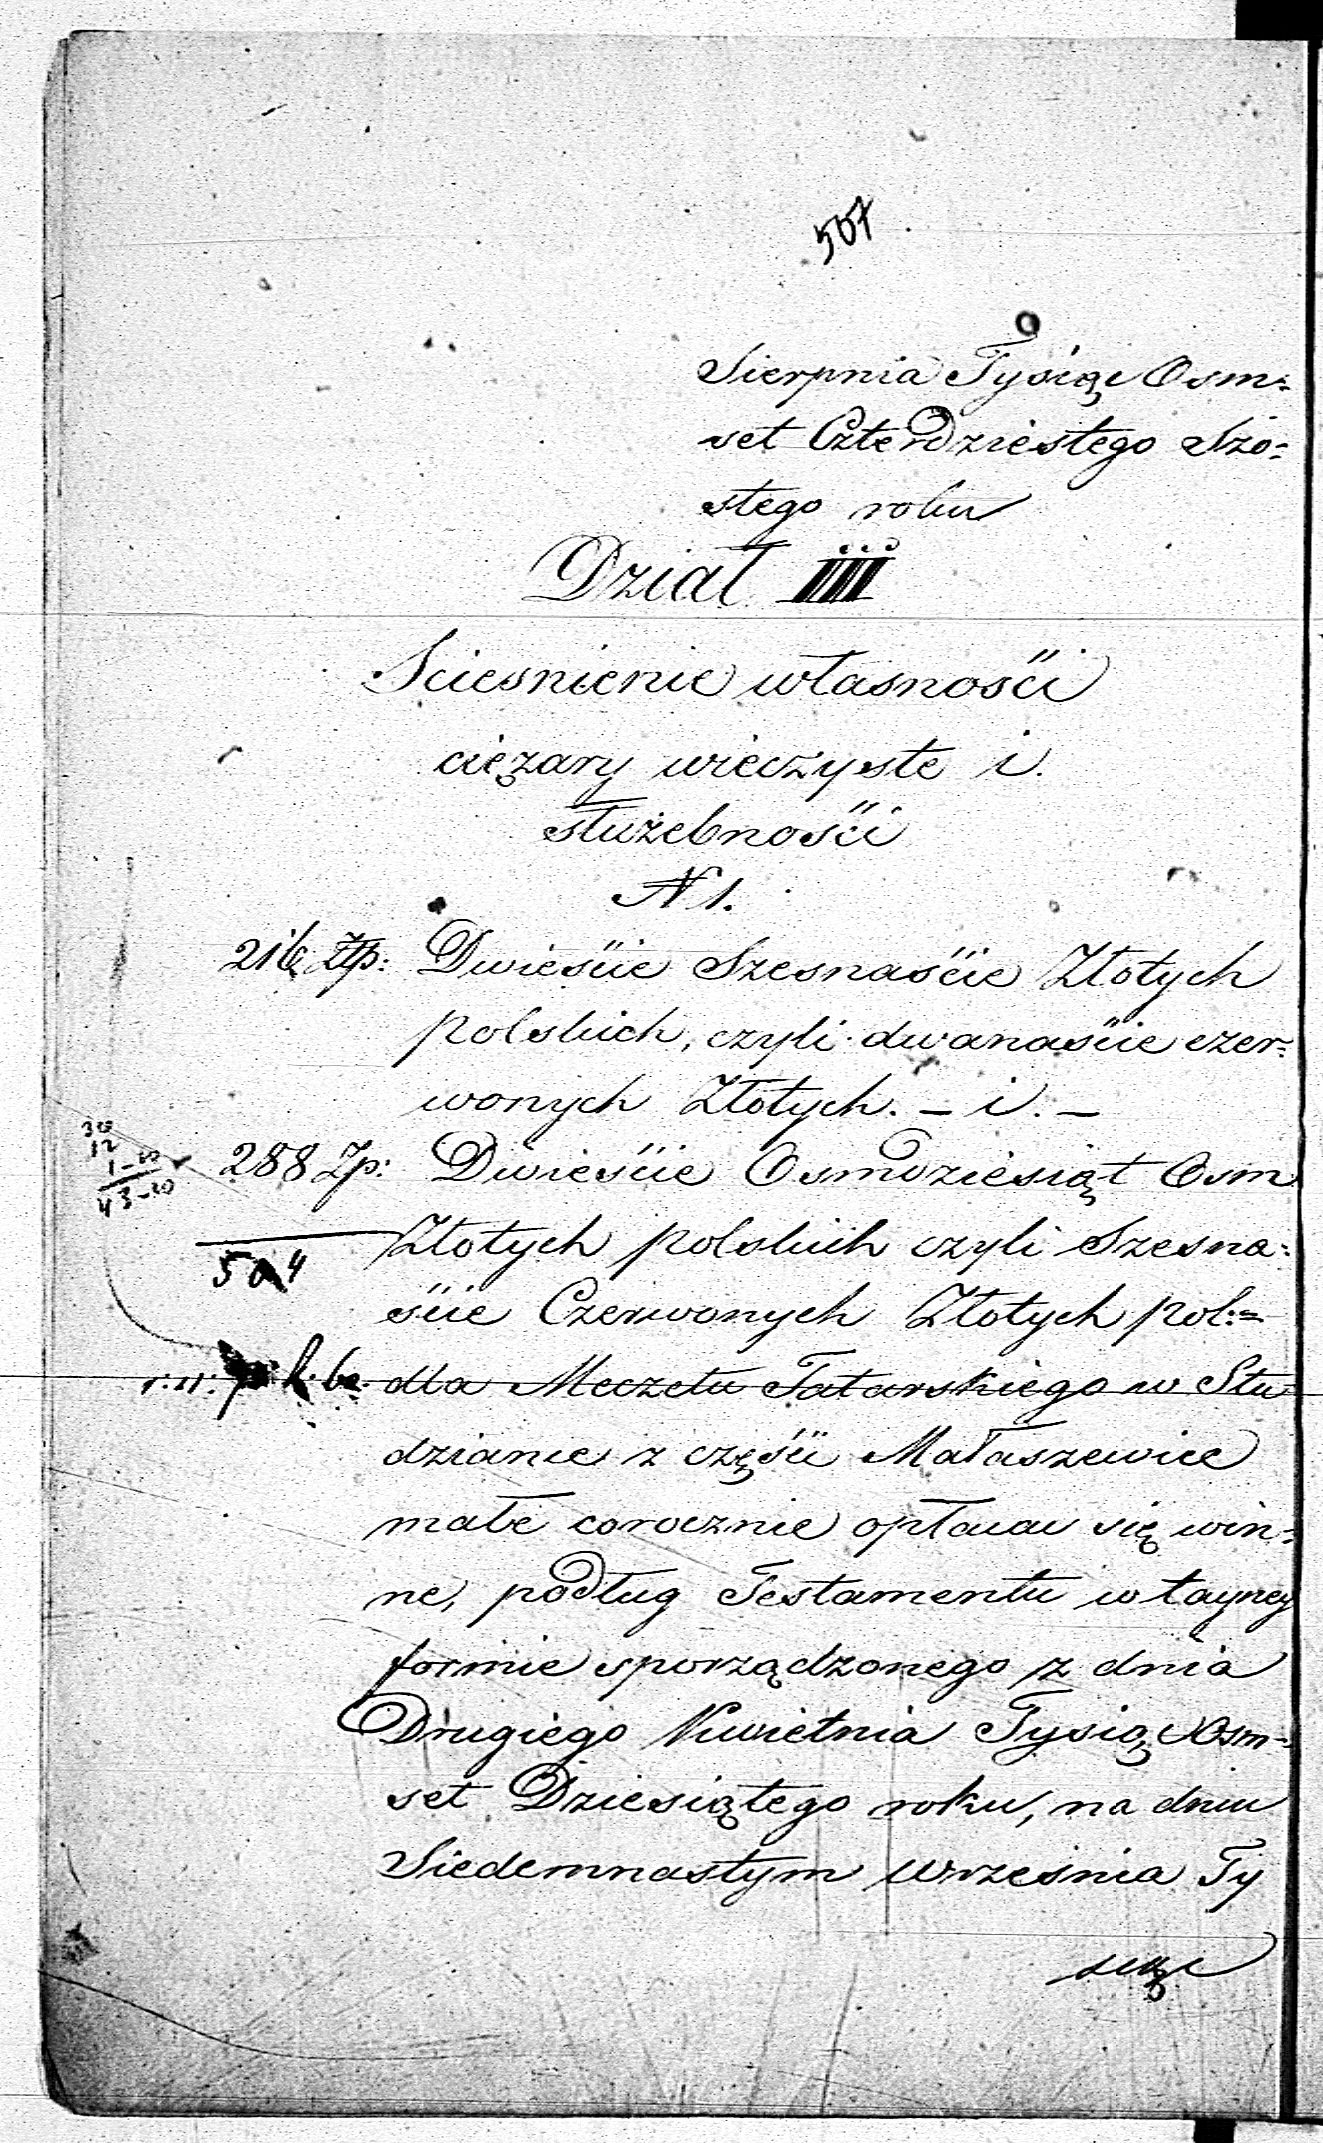 507
Sierpnia Tysiąc Osm=
set Czterdziestego Szo=
stego roku
Dział IIII
Sciesnienie własnośći
cięzary wieczyste i
służebnośći
N 1.
216 Złp: Dwieśćie Szesnaśćie Złotych
polskich, czyli dwanaśćie czer=
wonych Złotych. – i. –
30
12
1–20
43–20
288 Zp: Dwieśćie Osmdziesiąt Osm
Złotych polskich czyli Szesna=
504
śćie Czerwonych Złotych pol:=
dla Meczetu Tatarskiego w Stu
dziance z częśći Małaszewice
małe corocznie opłacac się win=
ne, podług Testamentu w tayney
formie sporządzonego z dnia
Drugiego Kwietnia Tysiąc Osm=
set Dziesiątego roku, na dniu
Siedemnastym Września Ty
siąc